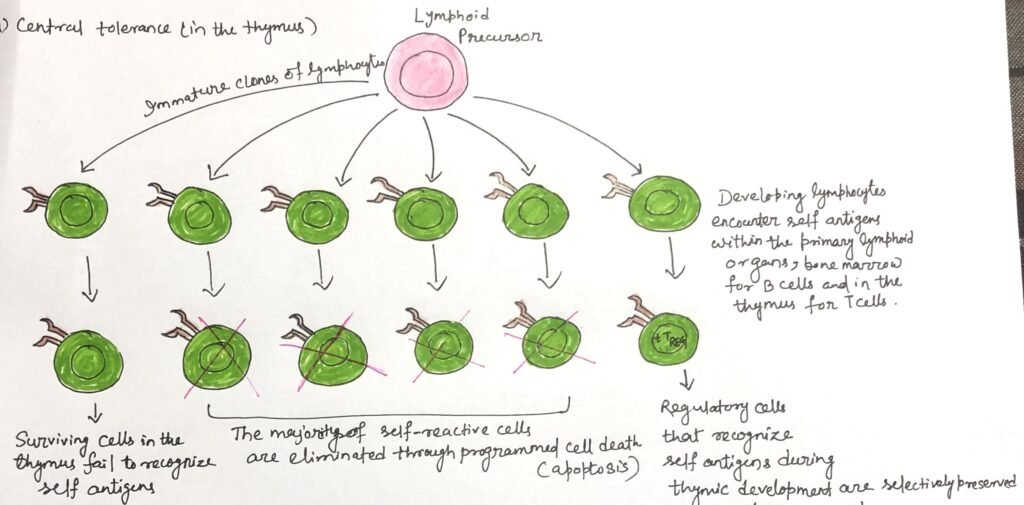 ) Central tolerance (in the thymus)
Lymphoid
Precursor
Immature clones of lymphocytes
Developing lymphocytes
encounter self antigens
within the primary lymphoid
organs, bone marrow
for B cells and in the
thymus for T cells.
tTREG
Surviving cells in the
thymus fail to recognize
self antigens
The majority of self-reactive cells
are eliminated through programmed cell death
(apoptosis)
Regulatory cells
that recognize
self antigens during
thymic development are selectively preserved